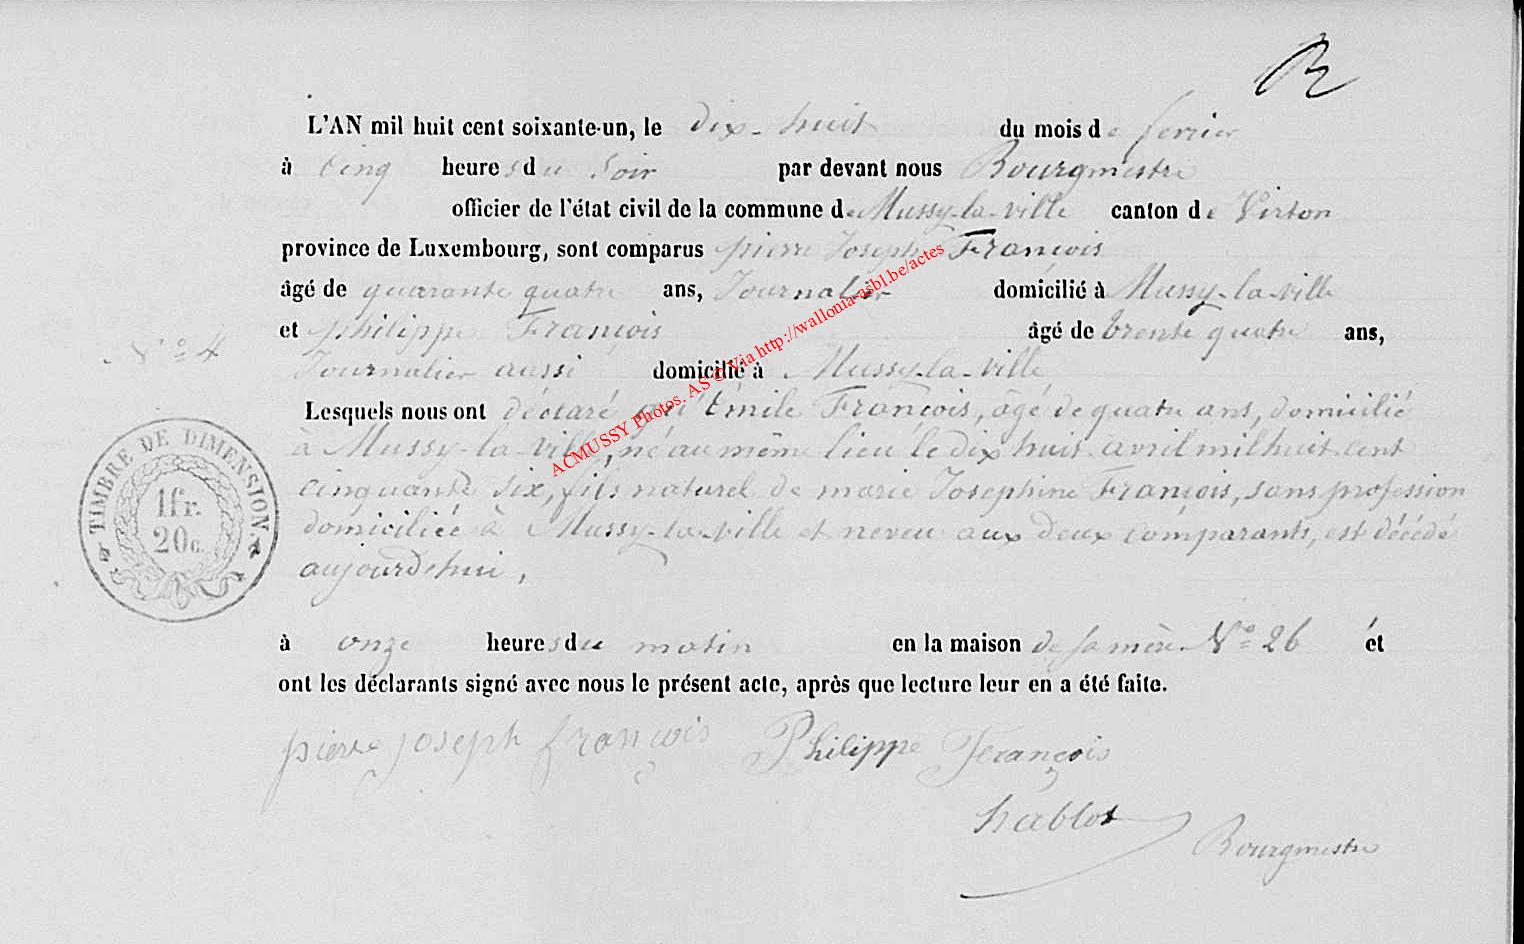 L'AN mil huit cent soixante-un, le dix-huit du mois de fevrier
à cinq heures du soir par devant nous Bourgmestre
officier de l'état civil de la commune de Mussy-la-ville canton de Virton
province de Luxembourg, sont comparus pierre Joseph François
âgé de quarante quatre ans, Journalier domicilié à Mussy-la-ville
et philippe François âgé de trente quatre ans,
N° 4
Journalier aussi domicilié à Mussy-la-ville
Lesquels nous ont déclaré qu'Émile François, âgé de quatre ans, domicilié
à Mussy-la-ville, né au même lieu le dix huit avril mil huit cent
cinquante six, fils naturel de marie Josephine François, sans profession
domiciliée à Mussy-la-ville et neveu aux deux comparants, est décédé
aujourd'hui,
à onze heures du matin en la maison de sa mère N° 26 et
ont les déclarants signé avec nous le présent acte, après que lecture leur en a été faite.
pierre joseph françois Philippe François
hablot
Bourgmestre
TIMBRE DE DIMENSION
1fr.
20c.
ACMUSSY Photos. AS © Via http://wallonia-asbl.be/actes